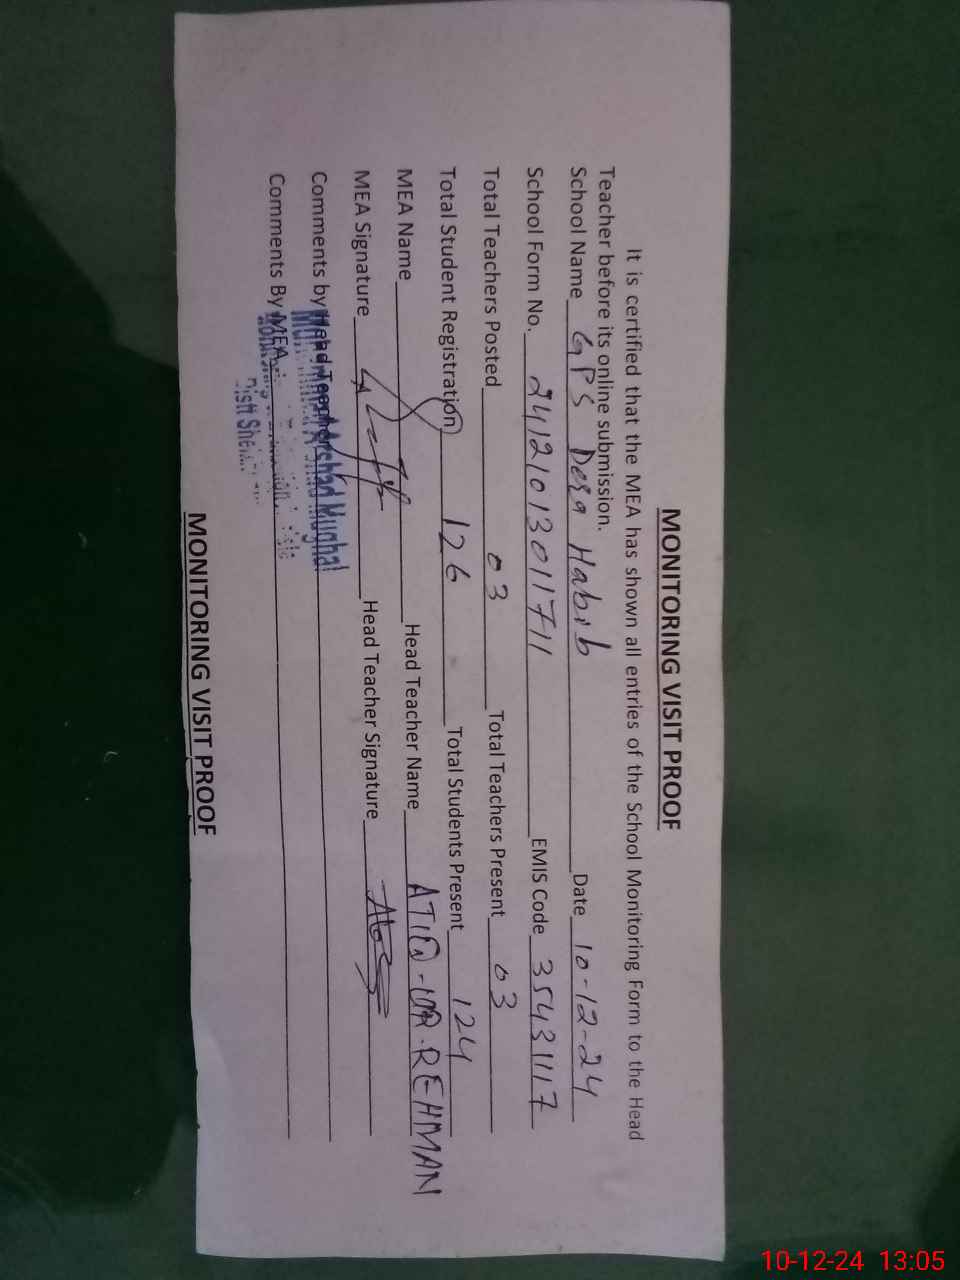 MONITORING VISIT PROOF
It is certified that the MEA has shown all entries of the School Monitoring Form to the Head
Teacher before its online submission.
School Name GPS Dera Habib Date 10-12-24
School Form No. 24121013011711 EMIS Code 35431117
Total Teachers Posted 03 Total Teachers Present 03
Total Student Registration 126 Total Students Present 124
MEA Name Head Teacher Name ATIQ-UR-REHMAN
MEA Signature Head Teacher Signature
Comments by Head Teacher
Arshad Mughal
Comments By MEA
Distt
MONITORING VISIT PROOF
10-12-24 13:05